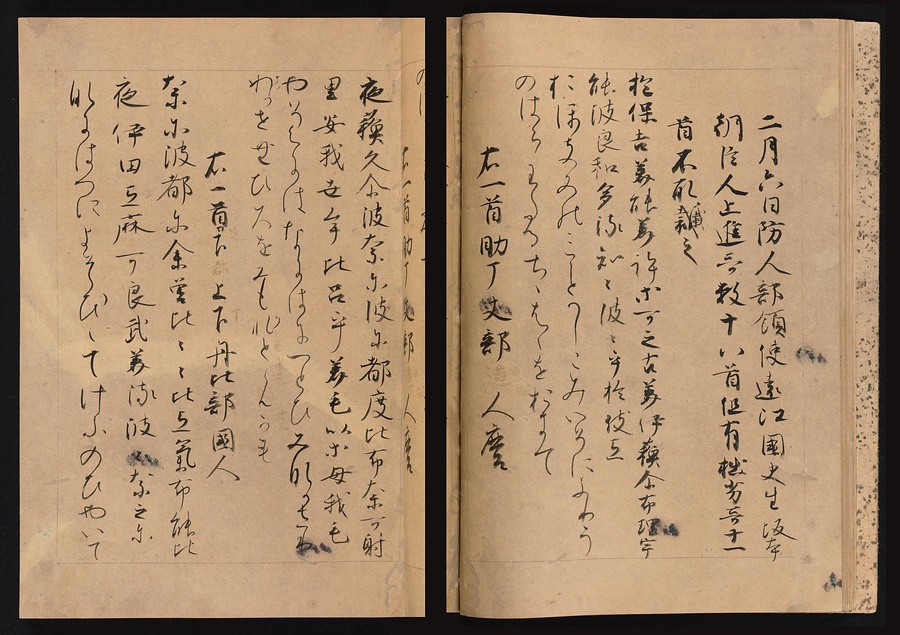 二月六日防人部領使遠江國史生坂本
朝臣人上進哥数十八首但有拙劣哥十一
首不取載之
於保吉美能美許等可之古美伊蘇尓布理宇
能波良和多流知々波々乎於伎弖
おほきみのみことかしこみいそにふりう
のはらわたるちちははをおきて
右一首助丁丈部 人麿
夜蘇久尓波奈尓波尓都度比布奈可射
里安我世牟比呂乎美毛比等母我毛
やそくにはなにはにつとひふなかさり
わかせむひろをみもひとんかも
右一首 上下丹比部國人
奈尓波都尓余曾比々々比弖氣布能比
夜伊田弖麻可良武美流波奈之尓
なにはつによそひ〱てけふのひやいて